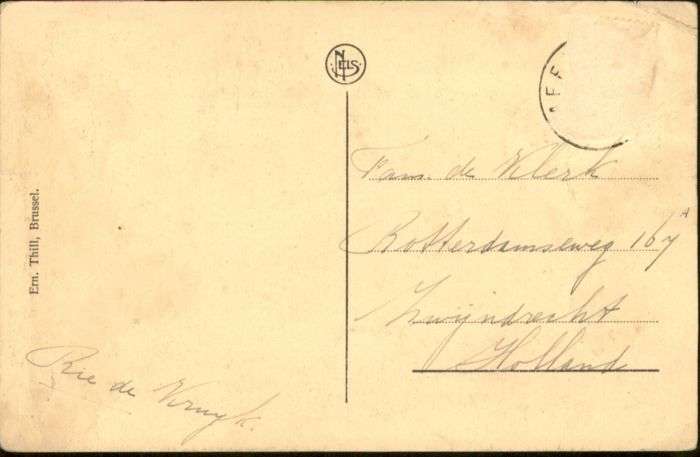 NELS
Ern. Thill, Brussel.
Fam. de Klerk
Rotterdamseweg 167 A
Zwijndrecht
Holland
Rie de